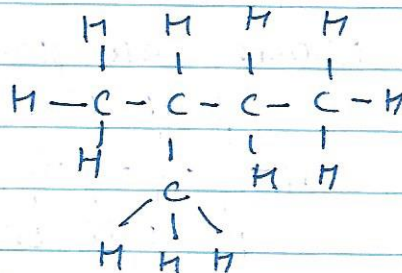 H H H H
H - C - C - C - C - H
H C H H
H H H